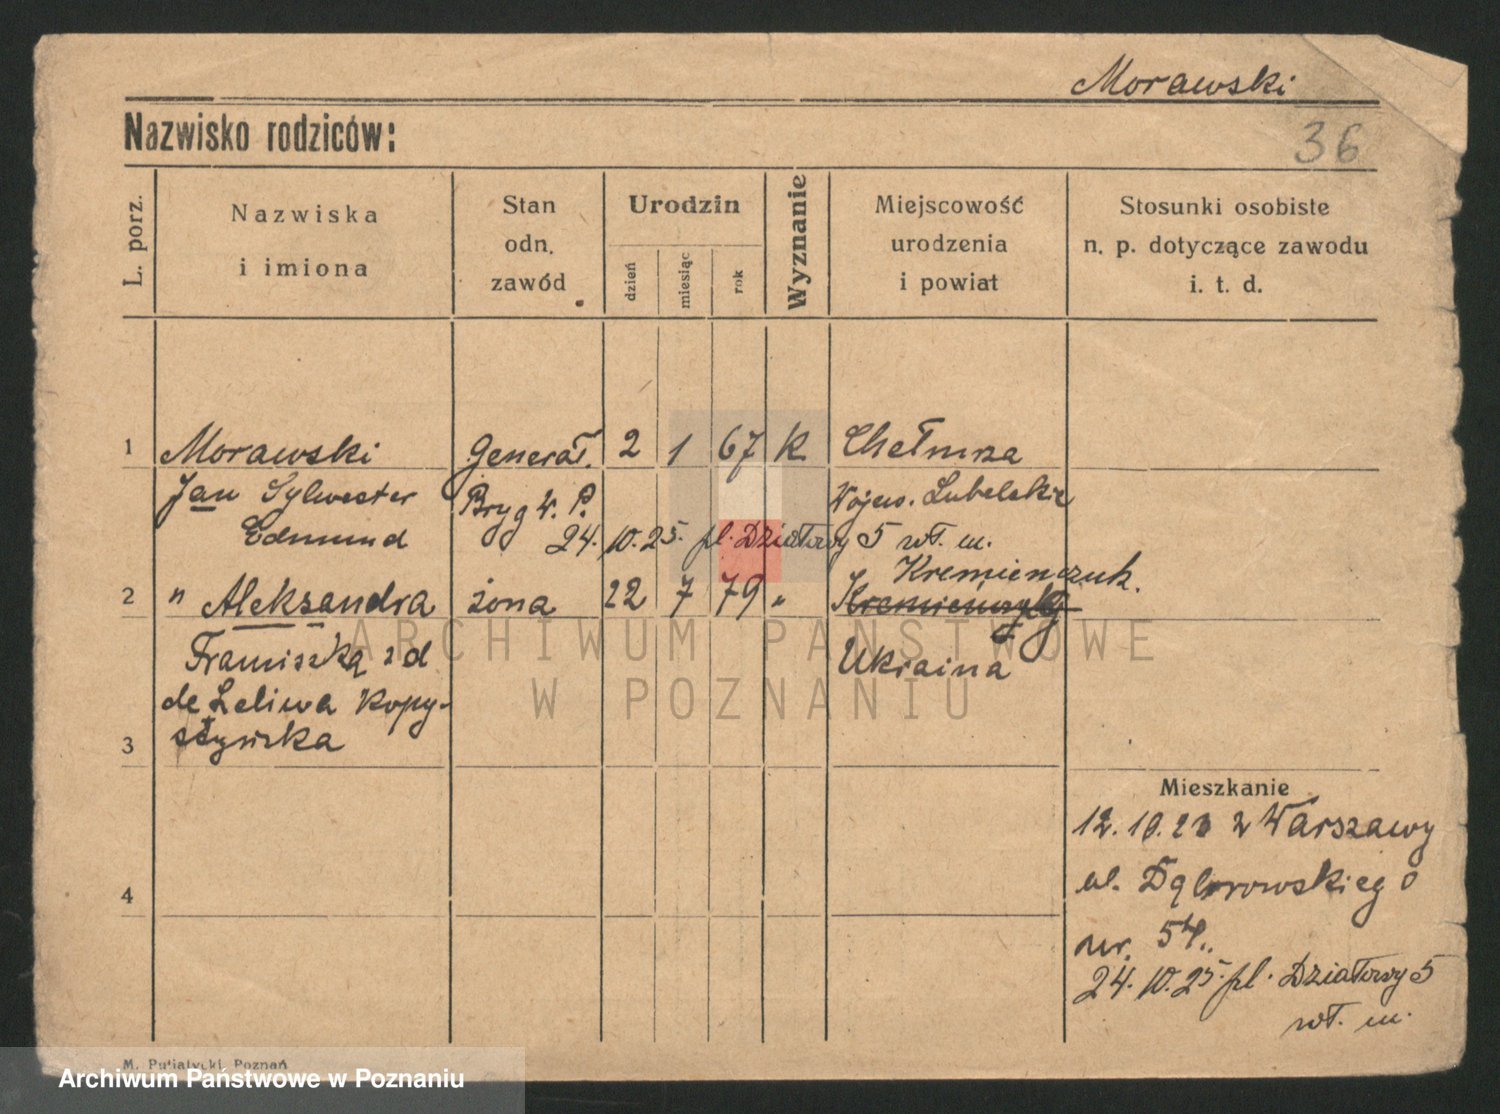 Morawski
Nazwisko rodziców:
36
L. porz.
Nazwiska
i imiona
Stan
odn.
zawód
Urodzin
dzień
miesiąc
rok
Wyznanie
Miejscowość
urodzenia
i powiat
Stosunki osobiste
n. p. dotyczące zawodu
i. t. d.
1 Morawski Generał. 2 1 67 K Chełmza
Jan Sylwester Bryg W. P. Wojew. Lubelskie
Edmund 24. 10. 25. pl. Działowy 5 wł. m.
Kremienczuk.
2 " Aleksandra żona 22 7 79 "
Franciszką z d Ukraina
de Leliwa Kopy-
styńska
3
Mieszkanie
12. 10. 23 z Warszawy
ul. Dąbrowskiego
4
nr. 54.
24. 10. 25. pl. Działowy 5
wł. m.
M. Putiatycki, Poznań
ARCHIWUM PAŃSTWOWE
W POZNANIU
Archiwum Państwowe w Poznaniu